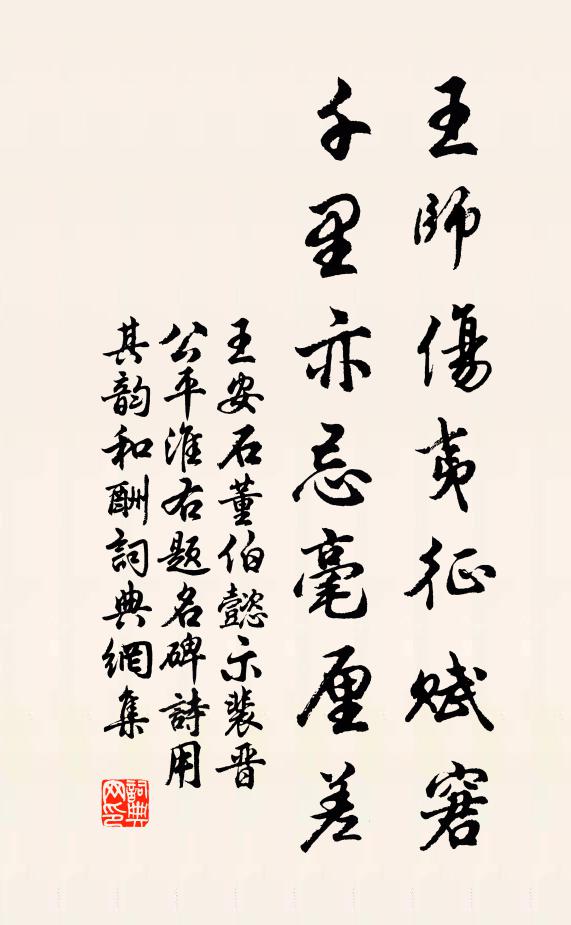 王師傷夷征賦窘
千里亦忌毫厘差
王安石董伯懿示裴晋
公平淮右题名碑詩用
其韵和酬詞典網集
詞典网印